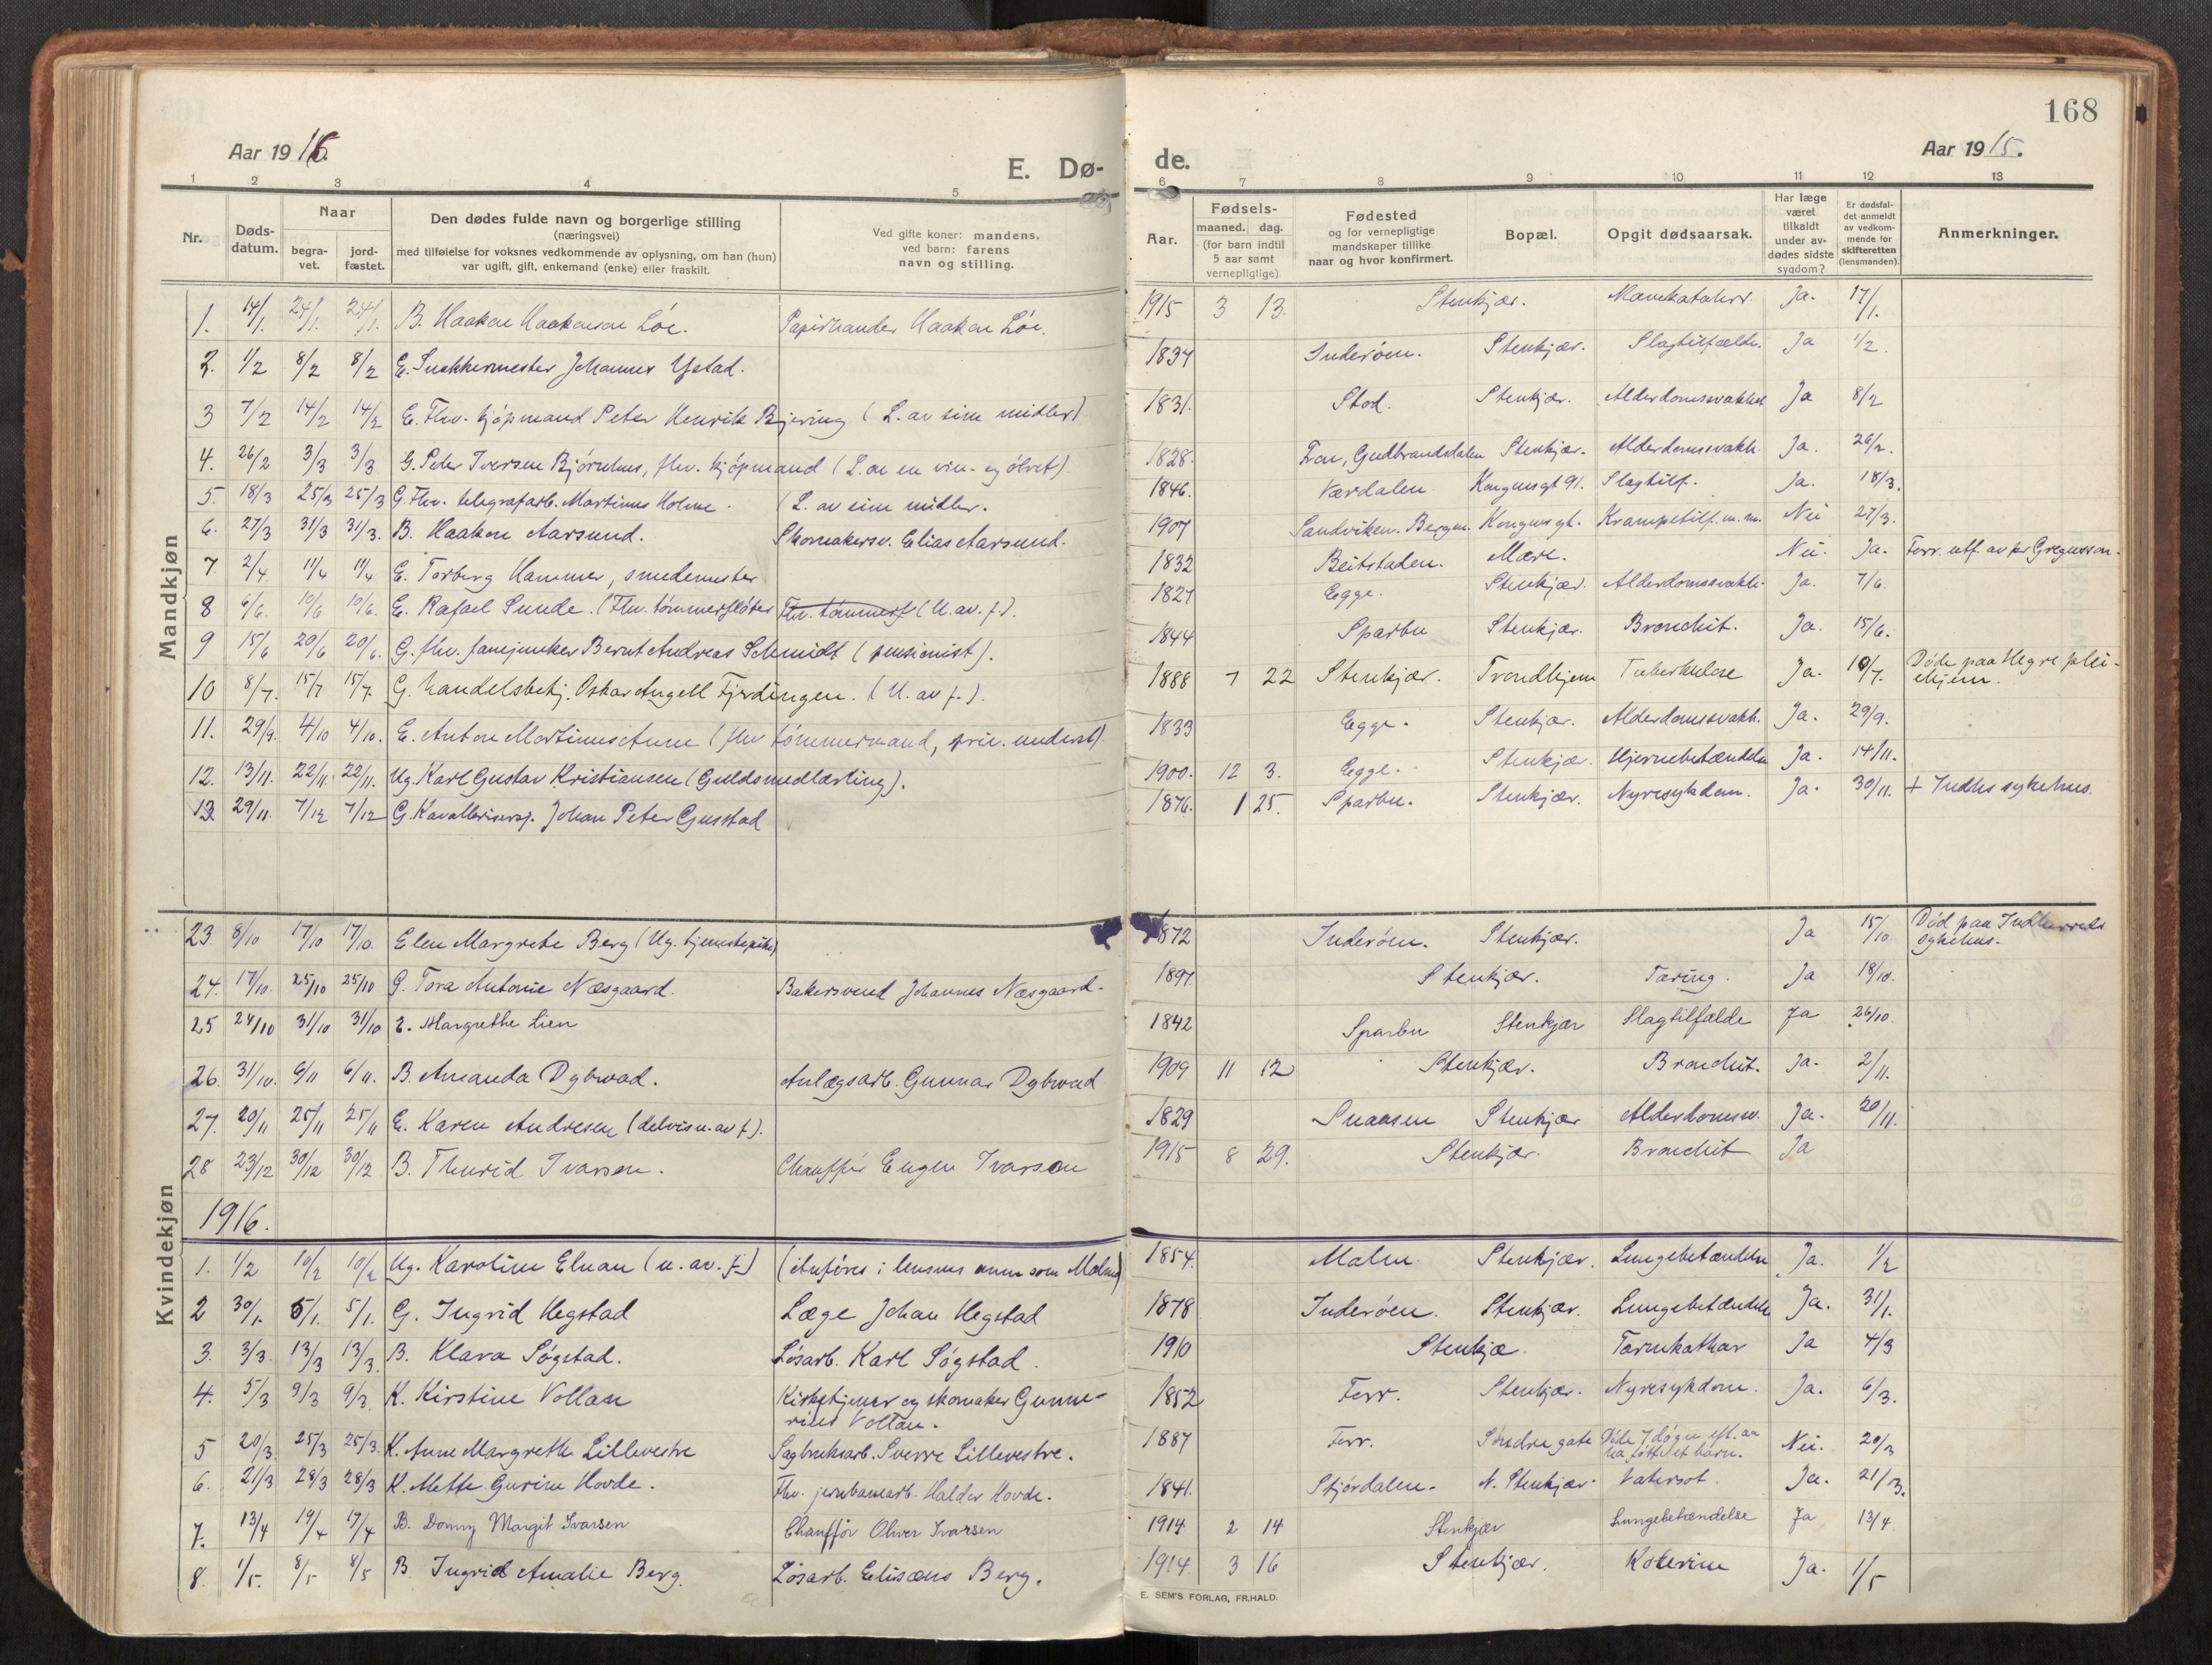 168
Aar 1916.
E. Dø-
de.
Aar 1915.
1 2 3 4 5 6 7 8 9 10 11 12 13
Nr. Døds-datum. Naar begra-vet. jord-fæstet. Den dødes fulde navn og borgerlige stilling (næringsvei) med tilføielse for voksnes vedkommende av oplysning, om han (hun) var ugift, gift, enkemand (enke) eller fraskilt. Ved gifte koner: mandens, ved barn: farens navn og stilling. Aar. Fødsels- maaned. dag. (for barn indtil 5 aar samt vernepligtige). Fødested og for vernepligtige mandskaper tillike naar og hvor konfirmert. Bopæl. Opgit dødsaarsak. Har læge været tilkaldt under av-dødes sidste sygdom? Er dødsfal-det anmeldt av vedkom-mende for skifteretten (lensmanden). Anmerkninger.
Mandkjøn
1. 14/1. 24/1. 24/1. B. Haakon Haakonson Løe. Papirhandler Haakon Løe. 1915 3 13. Stenkjær. Mavekatahrr. Ja. 17/1.
2. 1/2 8/2 8/2 E. Snekkermester Johannes Ystad. 1834 Inderøen. Stenkjær. Slagtilfælde. Ja 1/2.
3 7/2 14/2 14/2 E. Fhv. kjøpmand Peter Henrik Bjering (L. av sine midler) 1831. Stod. Stenkjær. Alderdomssvakhet Ja 8/2
4. 26/2 3/3 3/3 G. Peter Iversen Bjørnhus, fhv. kjøpmand (L. av en vin- og ølret). 1828. Fron, Gudbrandsdalen Stenkjær. Alderdomssvakh. Ja. 26/2.
5. 18/3 25/3 25/3 G. Fhv. telegrafarb. Martinus Holme. (L. av sine midler. 1846. Værdalen Kongensgt 91. Slagtilf. Ja. 18/3.
6. 27/3 31/3 31/3. B. Haakon Aarsund. Skomakersv. Elias Aarsund. 1907 Sandviken. Bergen. Kongensgt. Krampetilf. m.m. Nei 27/3.
7. 2/4 11/4 11/4 E. Torberg Hammer, smedemester 1832 Beitstaden. Mære. Nei. Ja. Forr. utf. av pr Gregusson.
8 6/6. 10/6 10/6. E. Rafael Sunde. (Fhv. tømmerfløter Fhv. tømmerf (U. av. f.). 1827 Egge. Stenkjær. Alderdomssvakh. Ja. 7/6.
9 15/6 20/6 20/6. G. fhv. fanejunker Bernt Andreas Schmidt (pensionist). 1844 Sparbu Stenkjær. Bronchit. Ja. 15/6.
10 8/7. 15/7 15/7. G. handelsbetj. Oskar Angell Fjerdingen. (U. av f.). 1888 7 22 Stenkjær. Trondhjem Tuberkulose Ja. 10/7. Døde paa Hegre plei-ehjem.
11. 29/9. 4/10 4/10. E. Anton Martinus Aune (fhv tømmermand, priv. underst). 1833 Egge. Stenkjær. Alderdomssvakh. Ja. 29/9.
12. 13/11. 22/11. 22/11. Ug. Karl Gustav Kristiansen (Guldsmedlærling). 1900. 12 3. Egge. Stenkjær. Hjernebetændelse Ja. 14/11.
13. 29/11. 7/12 7/12 G. Kavallerisersj. Johan Peter Gusstad 1876. 1 25. Sparbu. Stenkjær. Nyresykdom. Ja. 30/11. + Indhs sykehus.
Kvindekjøn
23. 8/10 17/10 17/10. Elen Margrete Berg (Ug. tjenestepike) 1872 Inderøen. Stenkjær. Ja 15/10. Død paa Indherreds sykehus.
24. 17/10. 25/10 25/10 G. Tora Antonie Næsgaard. Bakersvend Johannes Næsgaard. 1897. Stenkjær. Tæring. Ja 18/10.
25 24/10 31/10 31/10 E. Margrethe Lien 1842 Sparbu Stenkjær Slagtilfælde Ja 26/10.
26. 31/10. 6/11 6/11. B. Amanda Dybwad. Anlægsarb. Gunnar Dybwad 1909 11 12 Stenkjær. Bronchit. Ja. 2/11.
27. 20/11 25/11 25/11 E. Karen Andresen (delvis u. av f). 1829 Snaasen Stenkjær Alderdomssv. Ja. 20/11.
28 23/12 30/12 30/12 B. Thurid Ivarson. Chauffør Eugen Ivarson 1915 8 29. Stenkjær. Bronchit Ja
1916.
1. 1/2 10/2 10/2 Ug. Karoline Elnan (u. av. f.) (Anføres i lensms anm som Malmo) 1854. Malm. Stenkjær. Lungebetændelse Ja. 1/2
2 30/1. 5/1. 5/1. G. Ingrid Hegstad Læge Johan Hegstad 1878 Inderøen. Stenkjær. Lungebetændelse Ja. 31/1.
3. 3/3. 13/3 13/3. B. Klara Søgstad. Løsarb. Karl Søgstad. 1910 Stenkjæ. Tarmkathar Ja 4/3
4. 5/3 9/3 9/3. K. Kirstine Vollan Kirketjener og skomaker Gunne-rius Vollan. 1852 Forr. Stenkjær. Nyresykdom. Ja. 6/3.
5 20/3. 25/3 25/3. K. Anne Margrethe Lillevestre Sagbruksarb. Sverre Lillevestre. 1887 Forr. Søndre gate Døde 7 døgn eft. aa ha født et barn. Nei. 20/3
6. 21/3 28/3 28/3 K. Mette Gurine Hovde. Fhv. jernbanearb. Haldor Hovde. 1841. Stjørdalen. N. Stenkjær. Vatersot. Ja. 21/3.
7. 13/4 19/4 19/4 B. Donny Margit Ivarsen Chauffør Oliver Ivarsen 1914 2 14 Stenkjær Lungebetændelse Ja 13/4
8. 1/5. 8/5 8/5 B. Ingrid Amalie Berg. Løsarb. Elisæus Berg. 1914 3 16 Stenkjær. Kolerine Ja. 1/5
E. SEM'S FORLAG, FR.HALD.